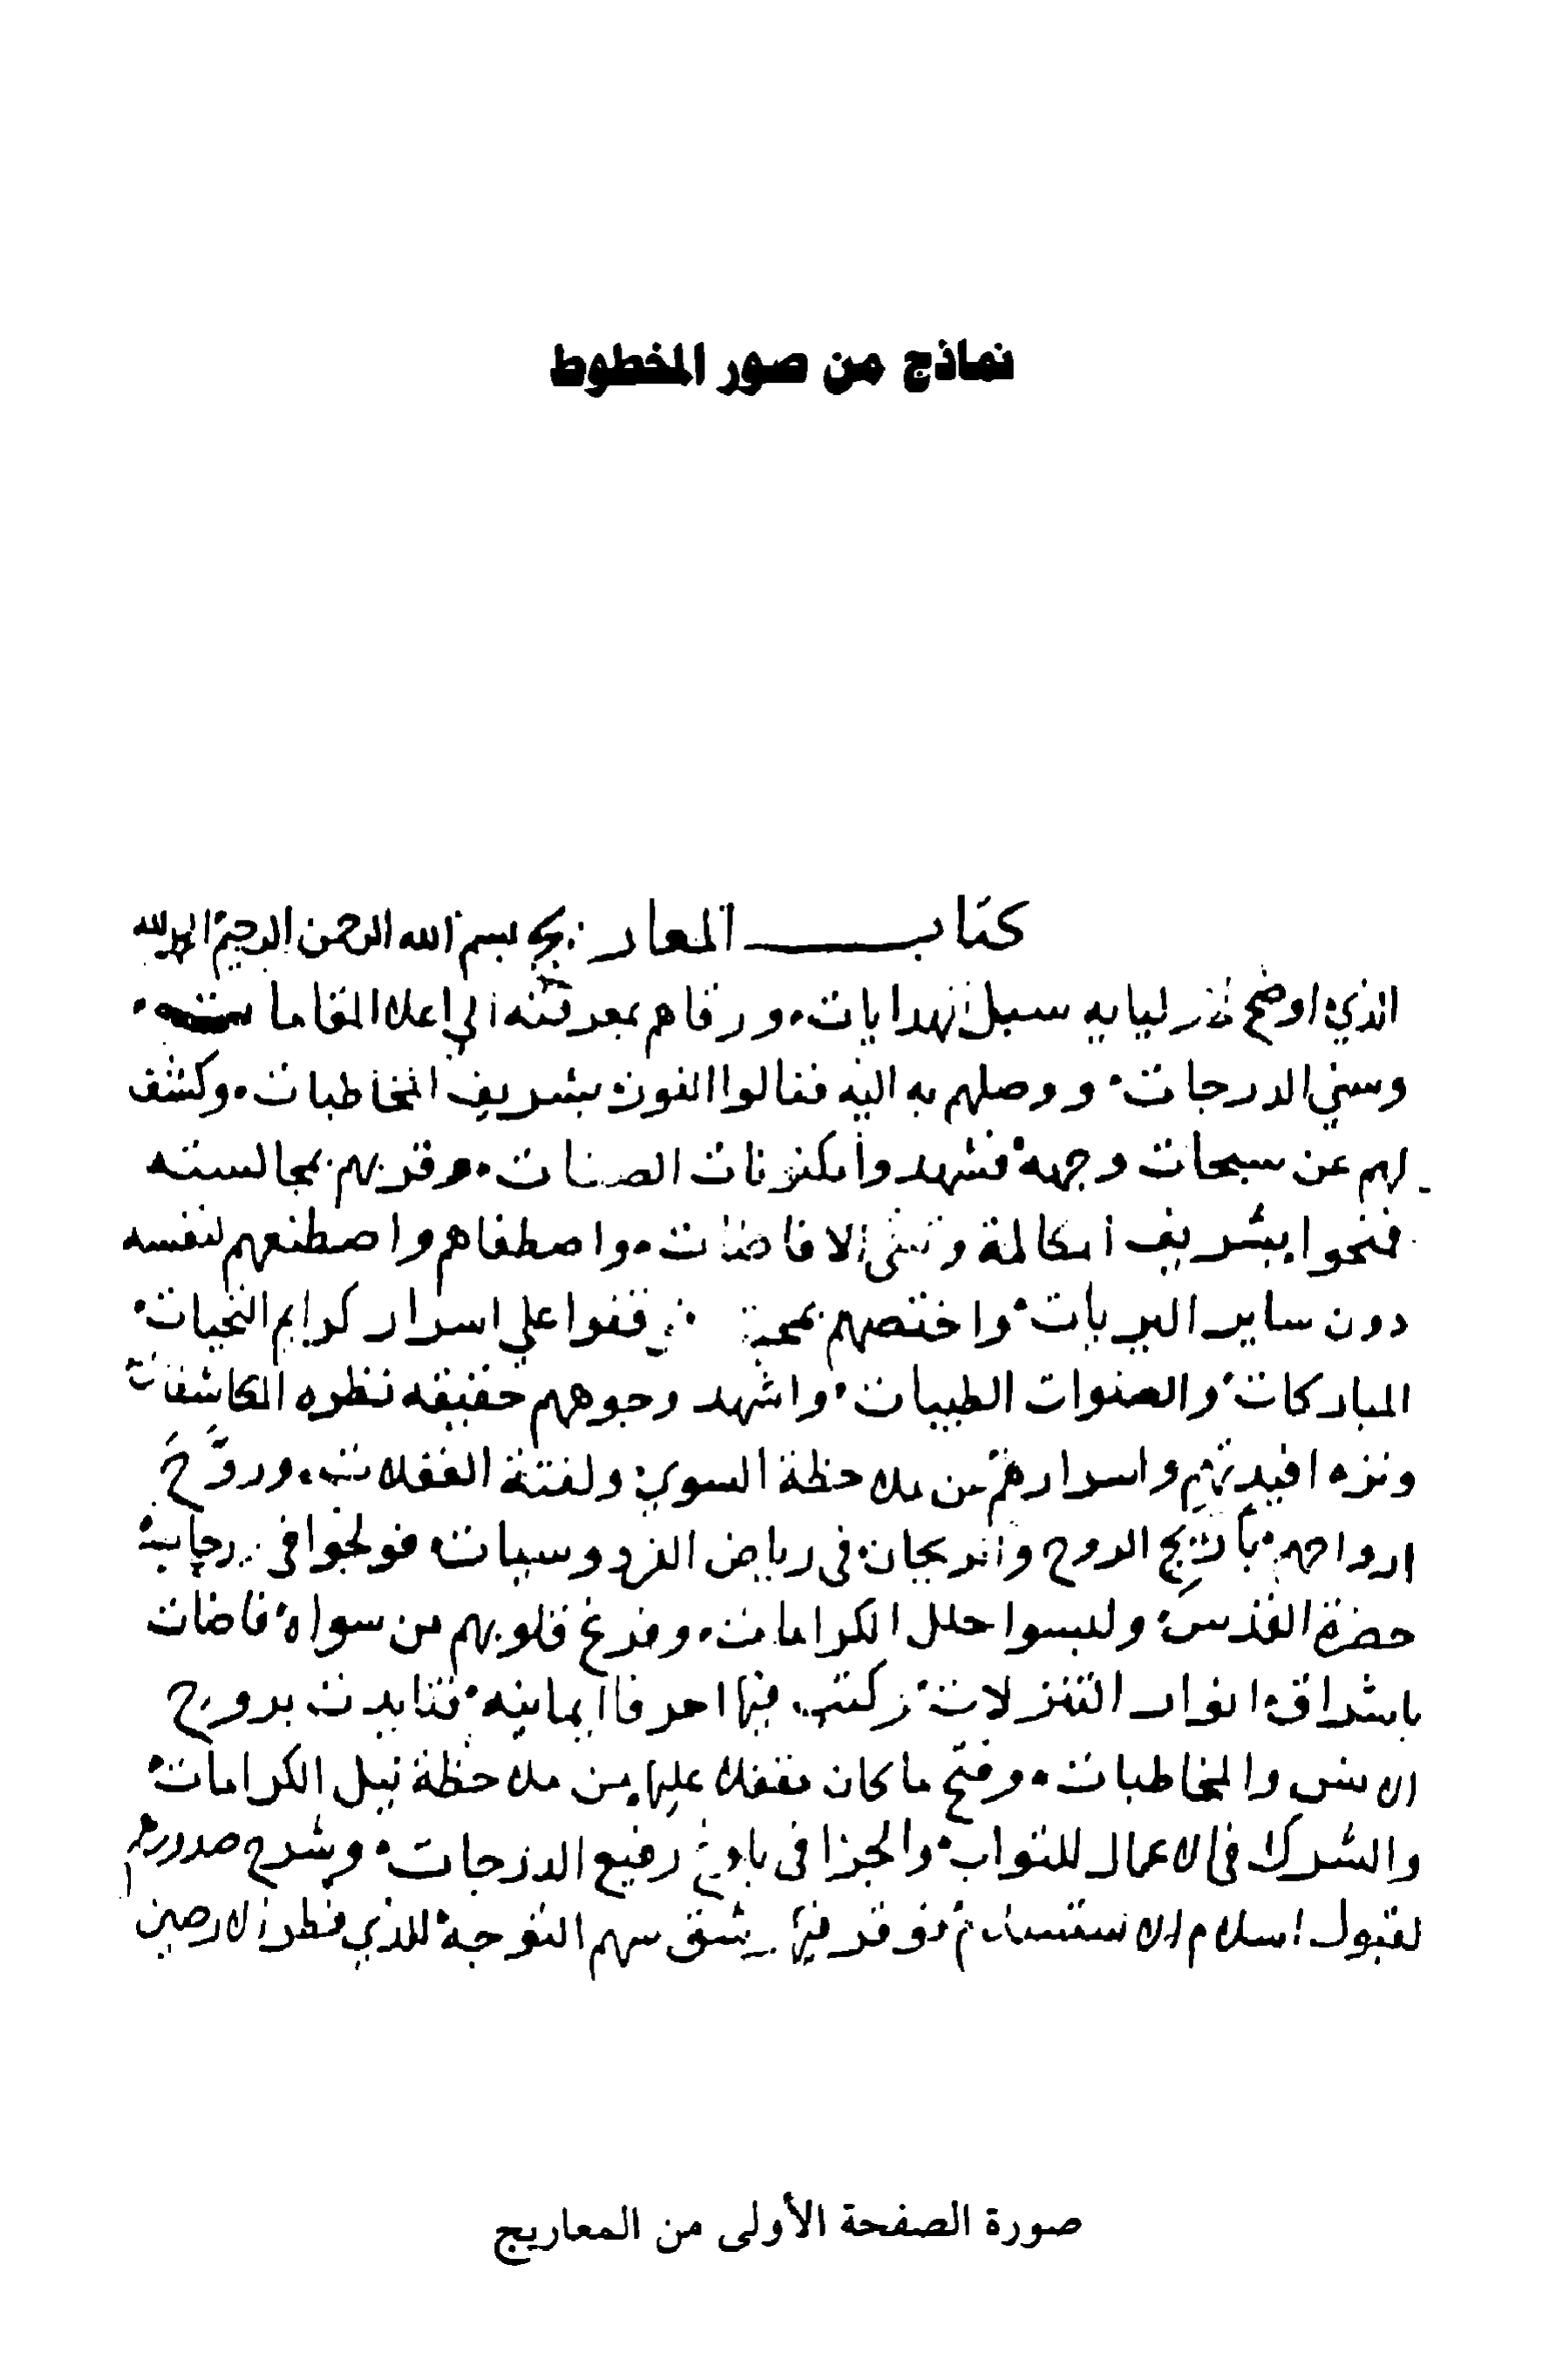 نماذج من صور المخطوط
كتاب المعاريج بسم الله الرحمن الرحيم الحمد لله
الذي اوضح سبل الهدايات ورقاهم بمعرفته الي اعلا المقامات
وسني الدرجات ووصلهم به اليه فنالوا بشريف المخاطبات وكشف
لهم عن سبحات وجهه فشهدوا مكنونات الصفات وقربهم بمجالسته
فنحوا بشريف المكالمة الافاضات واصطفاهم واصطنعهم لنفسه
دون ساير البريات واختصهم وقفوا علي اسرار كرايم التحيات
المباركات والصلوات الطيبات واشهد وجوههم حقيقه نظره المكاشفات
ونزه افيدتهم واسرارهم من ملاحظة السوي ولفتة الغفلات وروَّحَ
ارواحهم الروح والريحان في رياض الفردوسيات فولجوا في
حضرة القدس ولبسوا حلل الكرامات وفرغ قلوبهم من سواه ففاضات
باشراق انوار التنزلات وكتب فيها احرفا ايمانيه فتايدت بروح
الانس والمخاطبات وفتح ما كان مقفلا عليها من ملاحظة نيل الكرامات
والشرك في الاعمال للثواب والجزا في رفيع الدرجات وشرح صدورهم
لقبول اسلام الاستسلام فوقر فيها سهم التوجه للذي فطر الارضين
صورة الصفحة الأولى من المعاريج